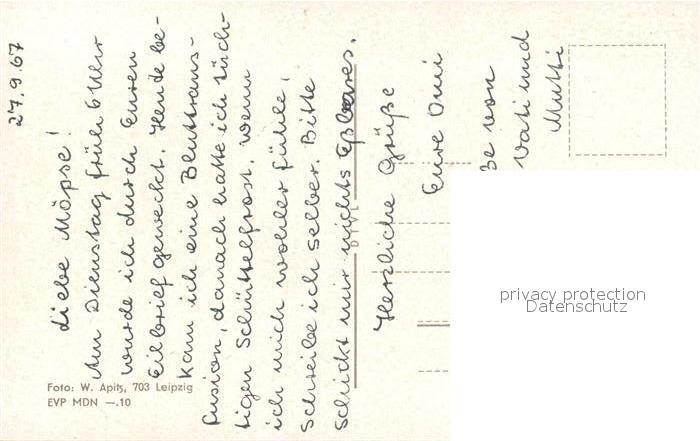 27.9.67
Liebe Möpse!
Am Dienstag früh 6 Uhr
wurde ich durch Euren
Eilbrief geweckt. Heute be-
kam ich eine Bluttrans-
fusion, danach hatte ich tüch-
tigen Schüttelfrost. Wenn
ich mich wohler fühle,
schreibe ich selber. Bitte
schickt mir nichts Eßbares.
Herzliche Grüße
Eure Omi
ße von
Vati und
Mutti
DTVL
Foto: W. Apitz, 703 Leipzig
EVP MDN —.10
privacy protection
Datenschutz